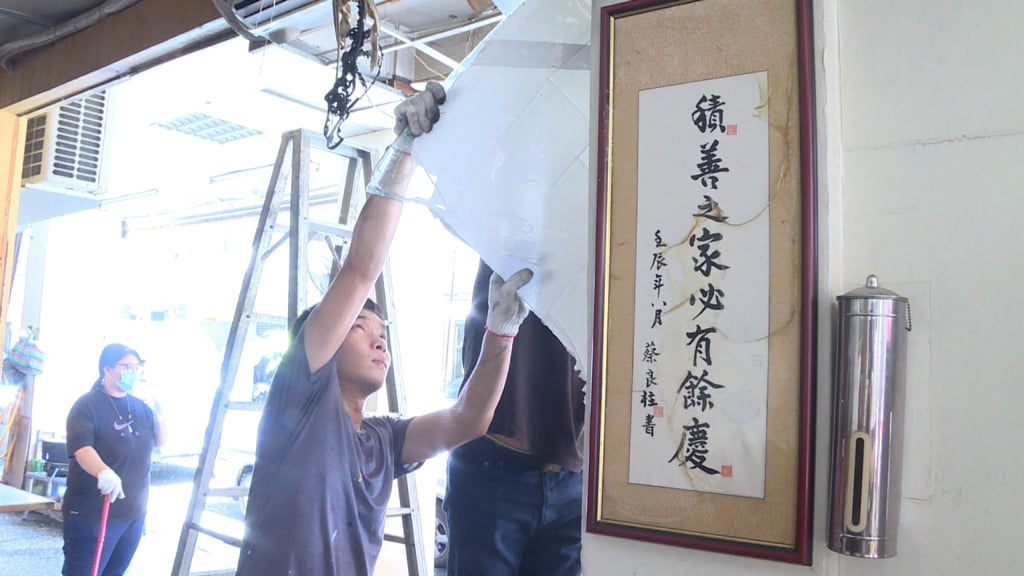 積善之家必有餘慶
壬辰年八月 蔡良柱書